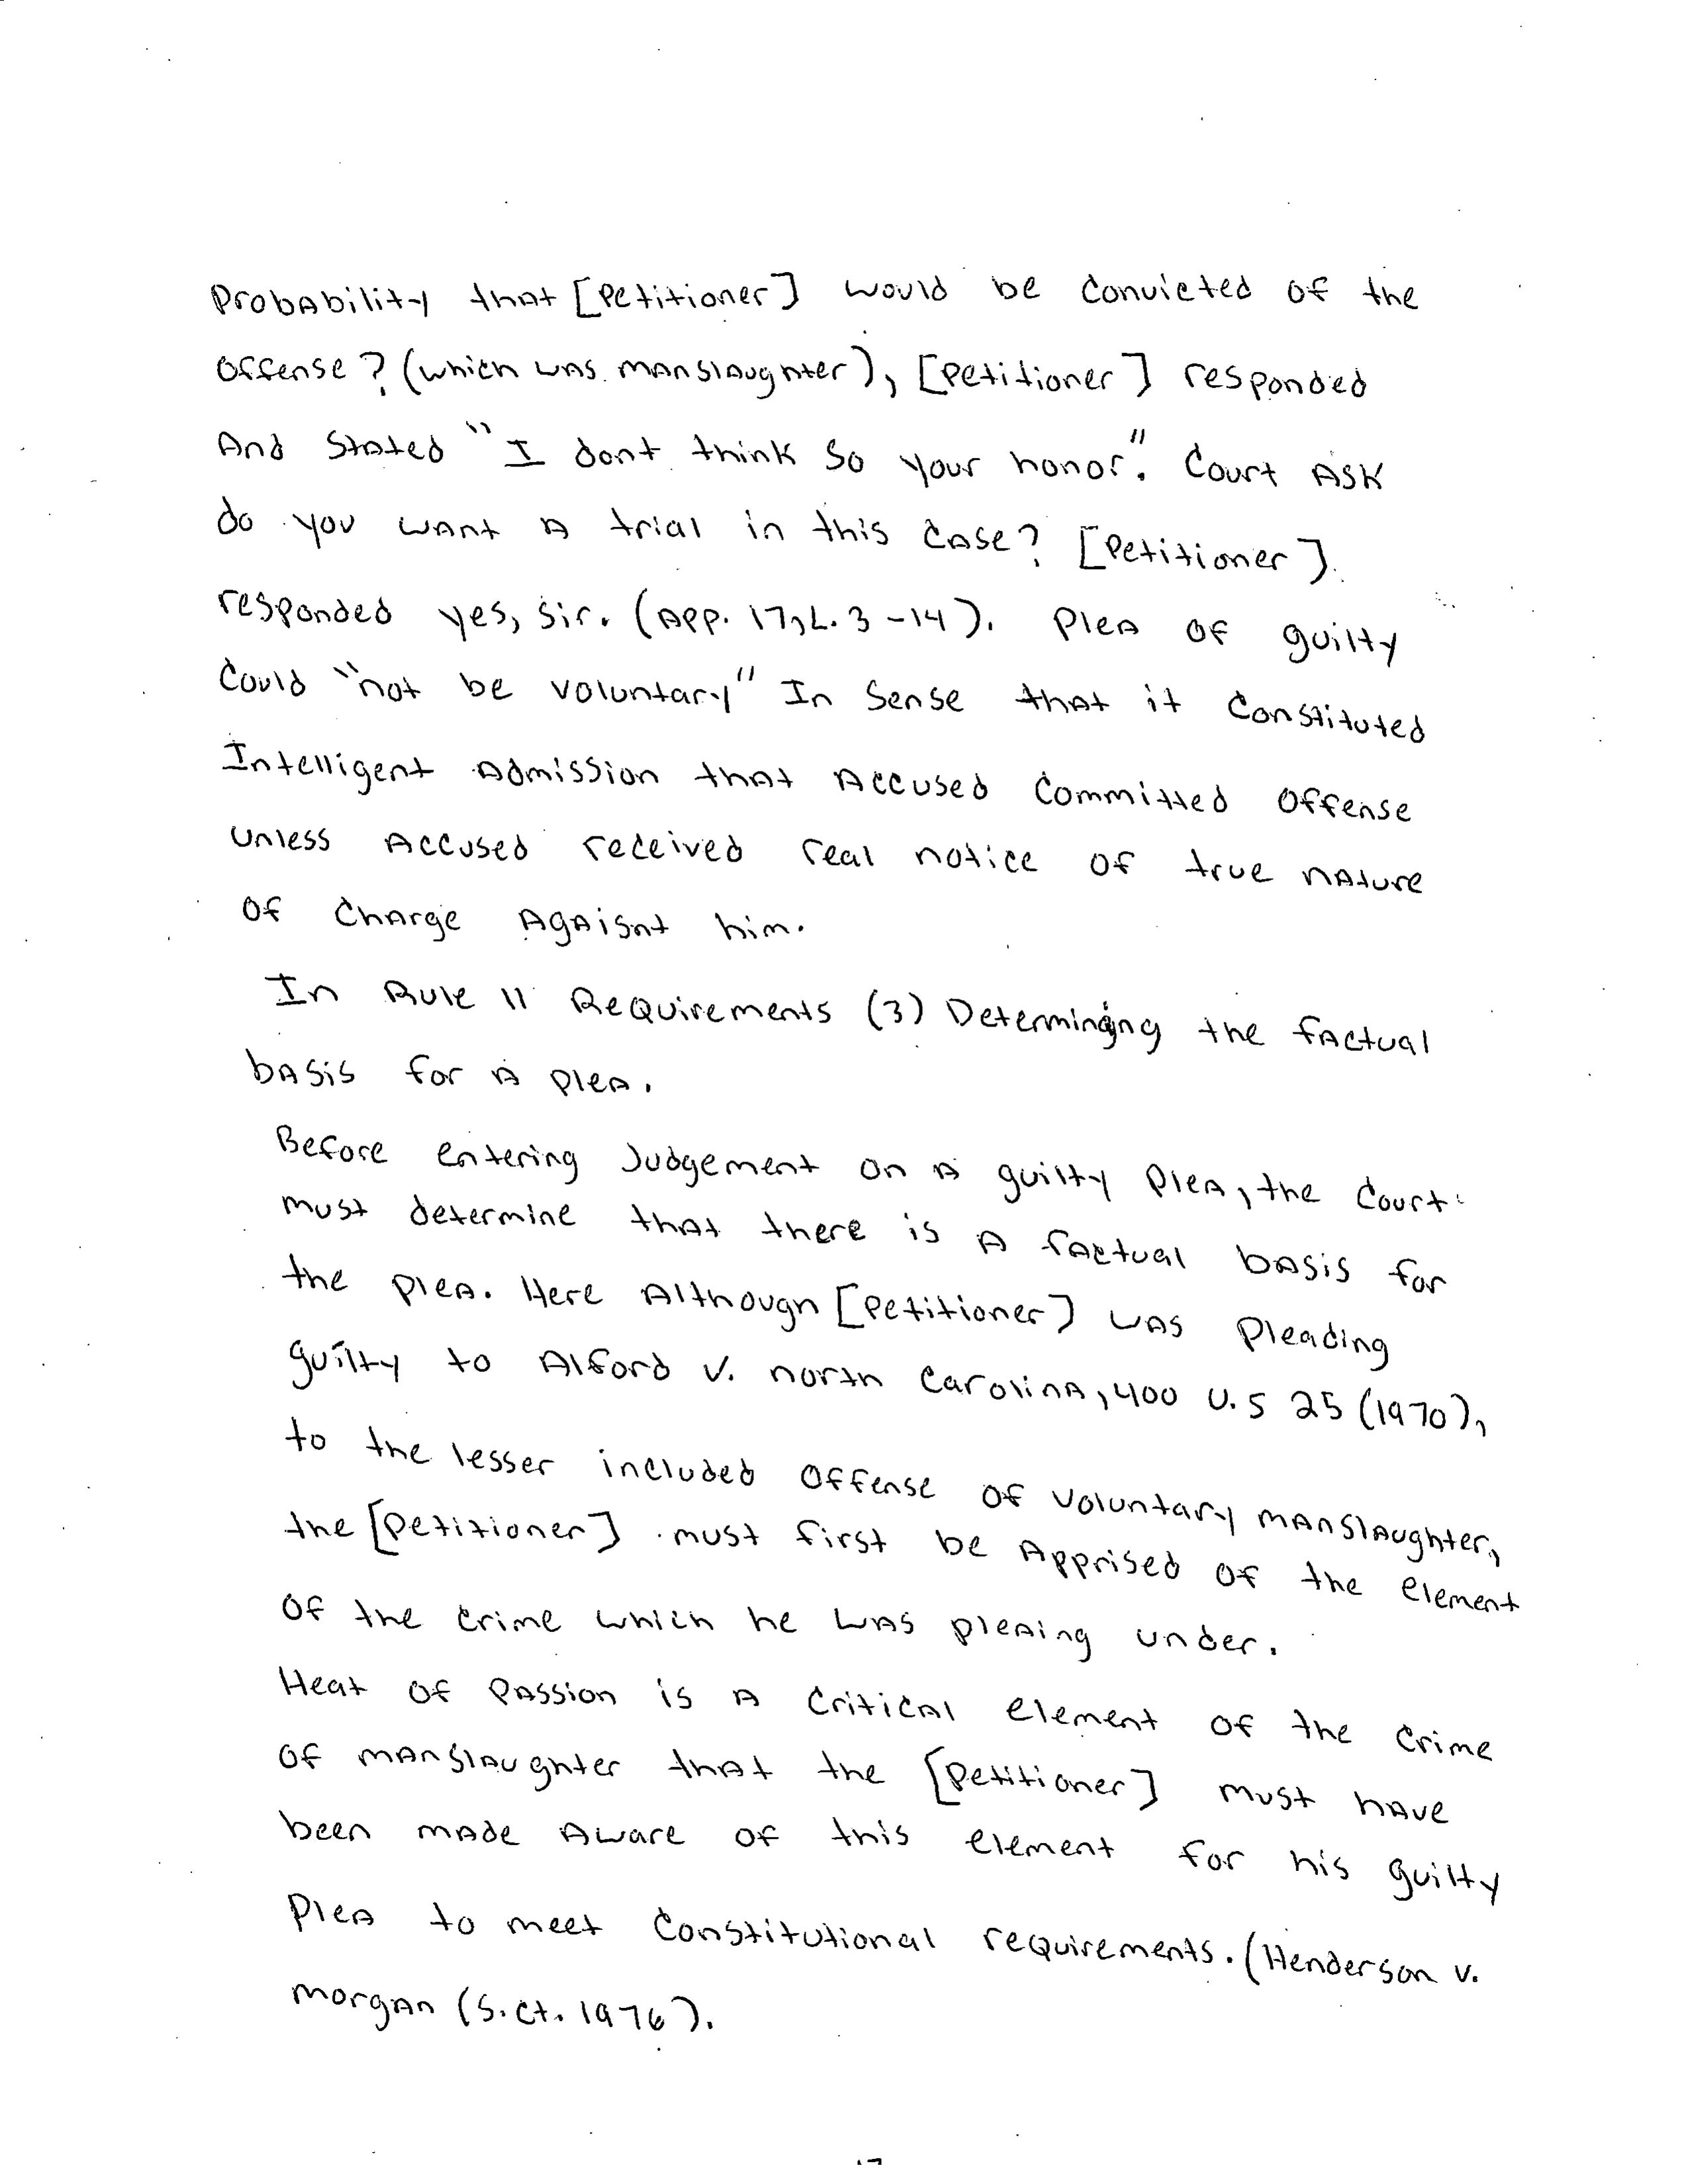 Probability that [Petitioner] would be convicted of the
offense? (which was manslaughter), [Petitioner] responded
And Stated "I dont think so your honor". Court ASK
do you want a trial in this case? [Petitioner]
responded yes, sir. (App. 17, L. 3-14). Plea of guilty
Could "not be voluntary" In Sense that it Constituted
Intelligent Admission that Accused Committed offense
unless Accused received real notice of true nature
of Charge Agaisnt him.
In Rule 11 Requirements (3) Determining the factual
basis for a plea.
Before entering Judgement on a guilty Plea, the Court
must determine that there is a factual basis for
the plea. Here Although [Petitioner] was Pleading
guilty to Alford v. north Carolina, 400 U.S 25 (1970),
to the lesser included offense of voluntary manslaughter,
the [Petitioner] must first be Apprised of the element
of the crime which he was pleaing under.
Heat of Passion is a critical element of the crime
of manslaughter that the [Petitioner] must have
been made Aware of this element for his guilty
Plea to meet Constitutional requirements. (Henderson v.
morgan (S.Ct. 1976).